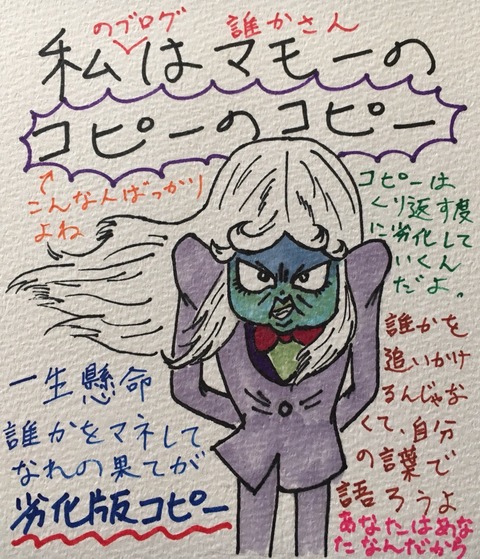 のブログ
誰かさん
私はマモーの
コピーのコピー
こんな人ばっかり
よね
コピーは
くり返す度
に劣化して
いくん
だよ。
一生懸命
誰かをマネして
なれの果てが
劣化版コピー
誰かを
追いかけ
るんじゃな
くて、自分
の言葉で
語ろうよ
あなたはあな
たなんだから